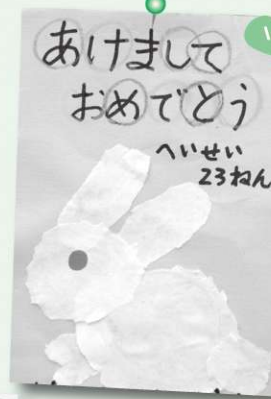 あけまして
おめでとう
へいせい
23ねん